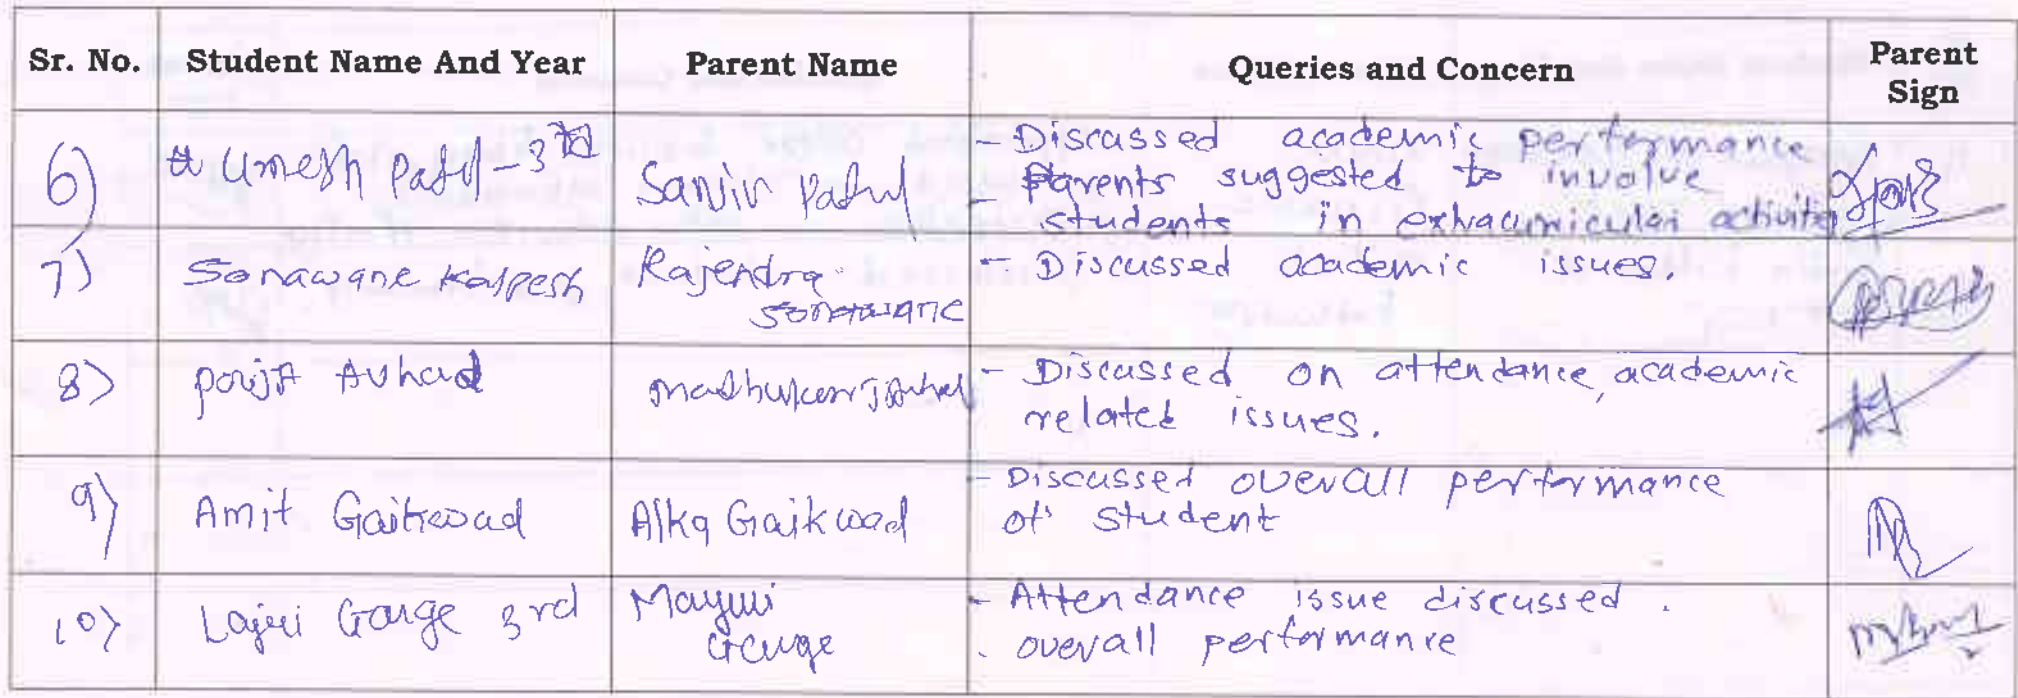 Sr. No. Student Name And Year Parent Name Queries and Concern Parent Sign
6) Umesh Patil - 3rd Sanjiv Patil - Discussed academic performance
- Parents suggested to involve
students in extracurricular activities
7) Sonawane Kalpesh Rajendra - Discussed academic issues.
Sonawane
8) Pooja Avhad - Discussed on attendance, academic
related issues.
9) Amit Gaikwad Alka Gaikwad - Discussed overall performance
of student
10) Garge 3rd Mayuri - Attendance issue discussed.
Garge . overall performance